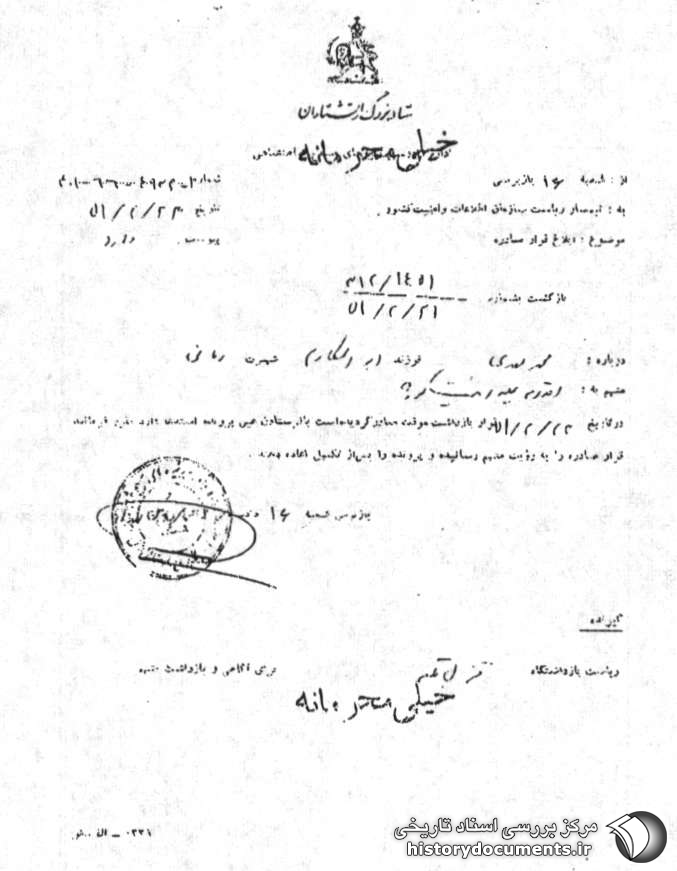 ستاد بزرگ ارتشتاران
خیلی محرمانه
از : شعبه ۱۶ بازپرسی
شماره
به : تیمسار ریاست سازمان اطلاعات و امنیت کشور
تاریخ ۵۱/۲/۲۳
موضوع : ابلاغ قرار صادره
پیوست دارد
بازگشت بشماره ۳۱۲/۱۴۵۱
۵۱/۲/۲۱
درباره : محمد مهدی فرزند ابوالمکارم شهرت ربانی
متهم به : اقدام علیه امنیت کشور
در تاریخ ۵۱/۲/۲۳ قرار بازداشت موقت صادر گردیده است با ارسال عین پرونده استدعا دارد مقرر فرمائید
قرار صادره را به رؤیت متهم رسانیده و پرونده را پس از تکمیل اعاده دهند .
بازپرس شعبه ۱۶
گیرنده
ریاست بازداشتگاه قزل قلعه برای آگاهی و بازداشت متهم
خیلی محرمانه
مرکز بررسی اسناد تاریخی
historydocuments.ir